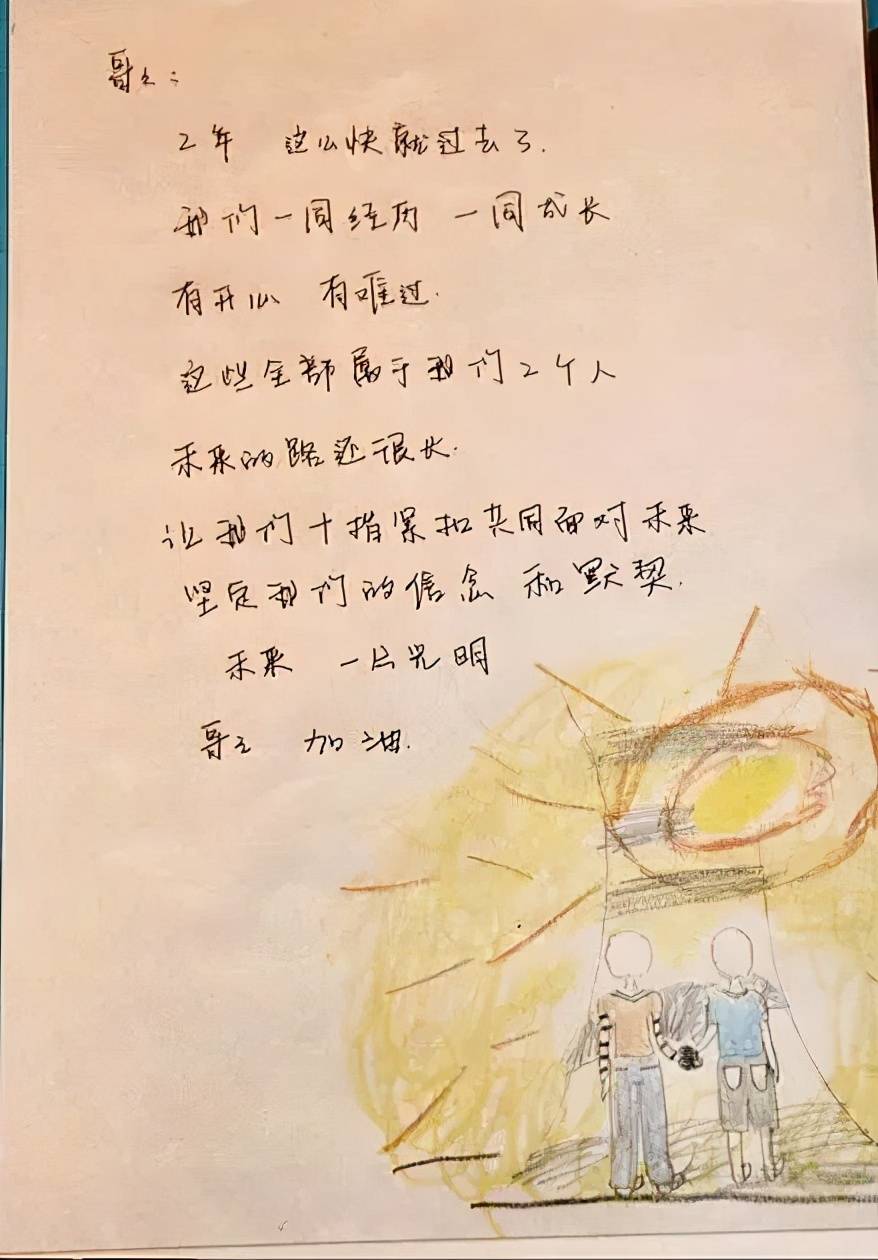 哥々：
2年 这么快就过去了.
我们一同经历 一同成长
有开心 有难过.
这些全部属于我们2个人
未来的路还很长.
让我们十指紧扣共同面对未来
坚定我们的信念 和默契.
未来 一片光明
哥々 加油.